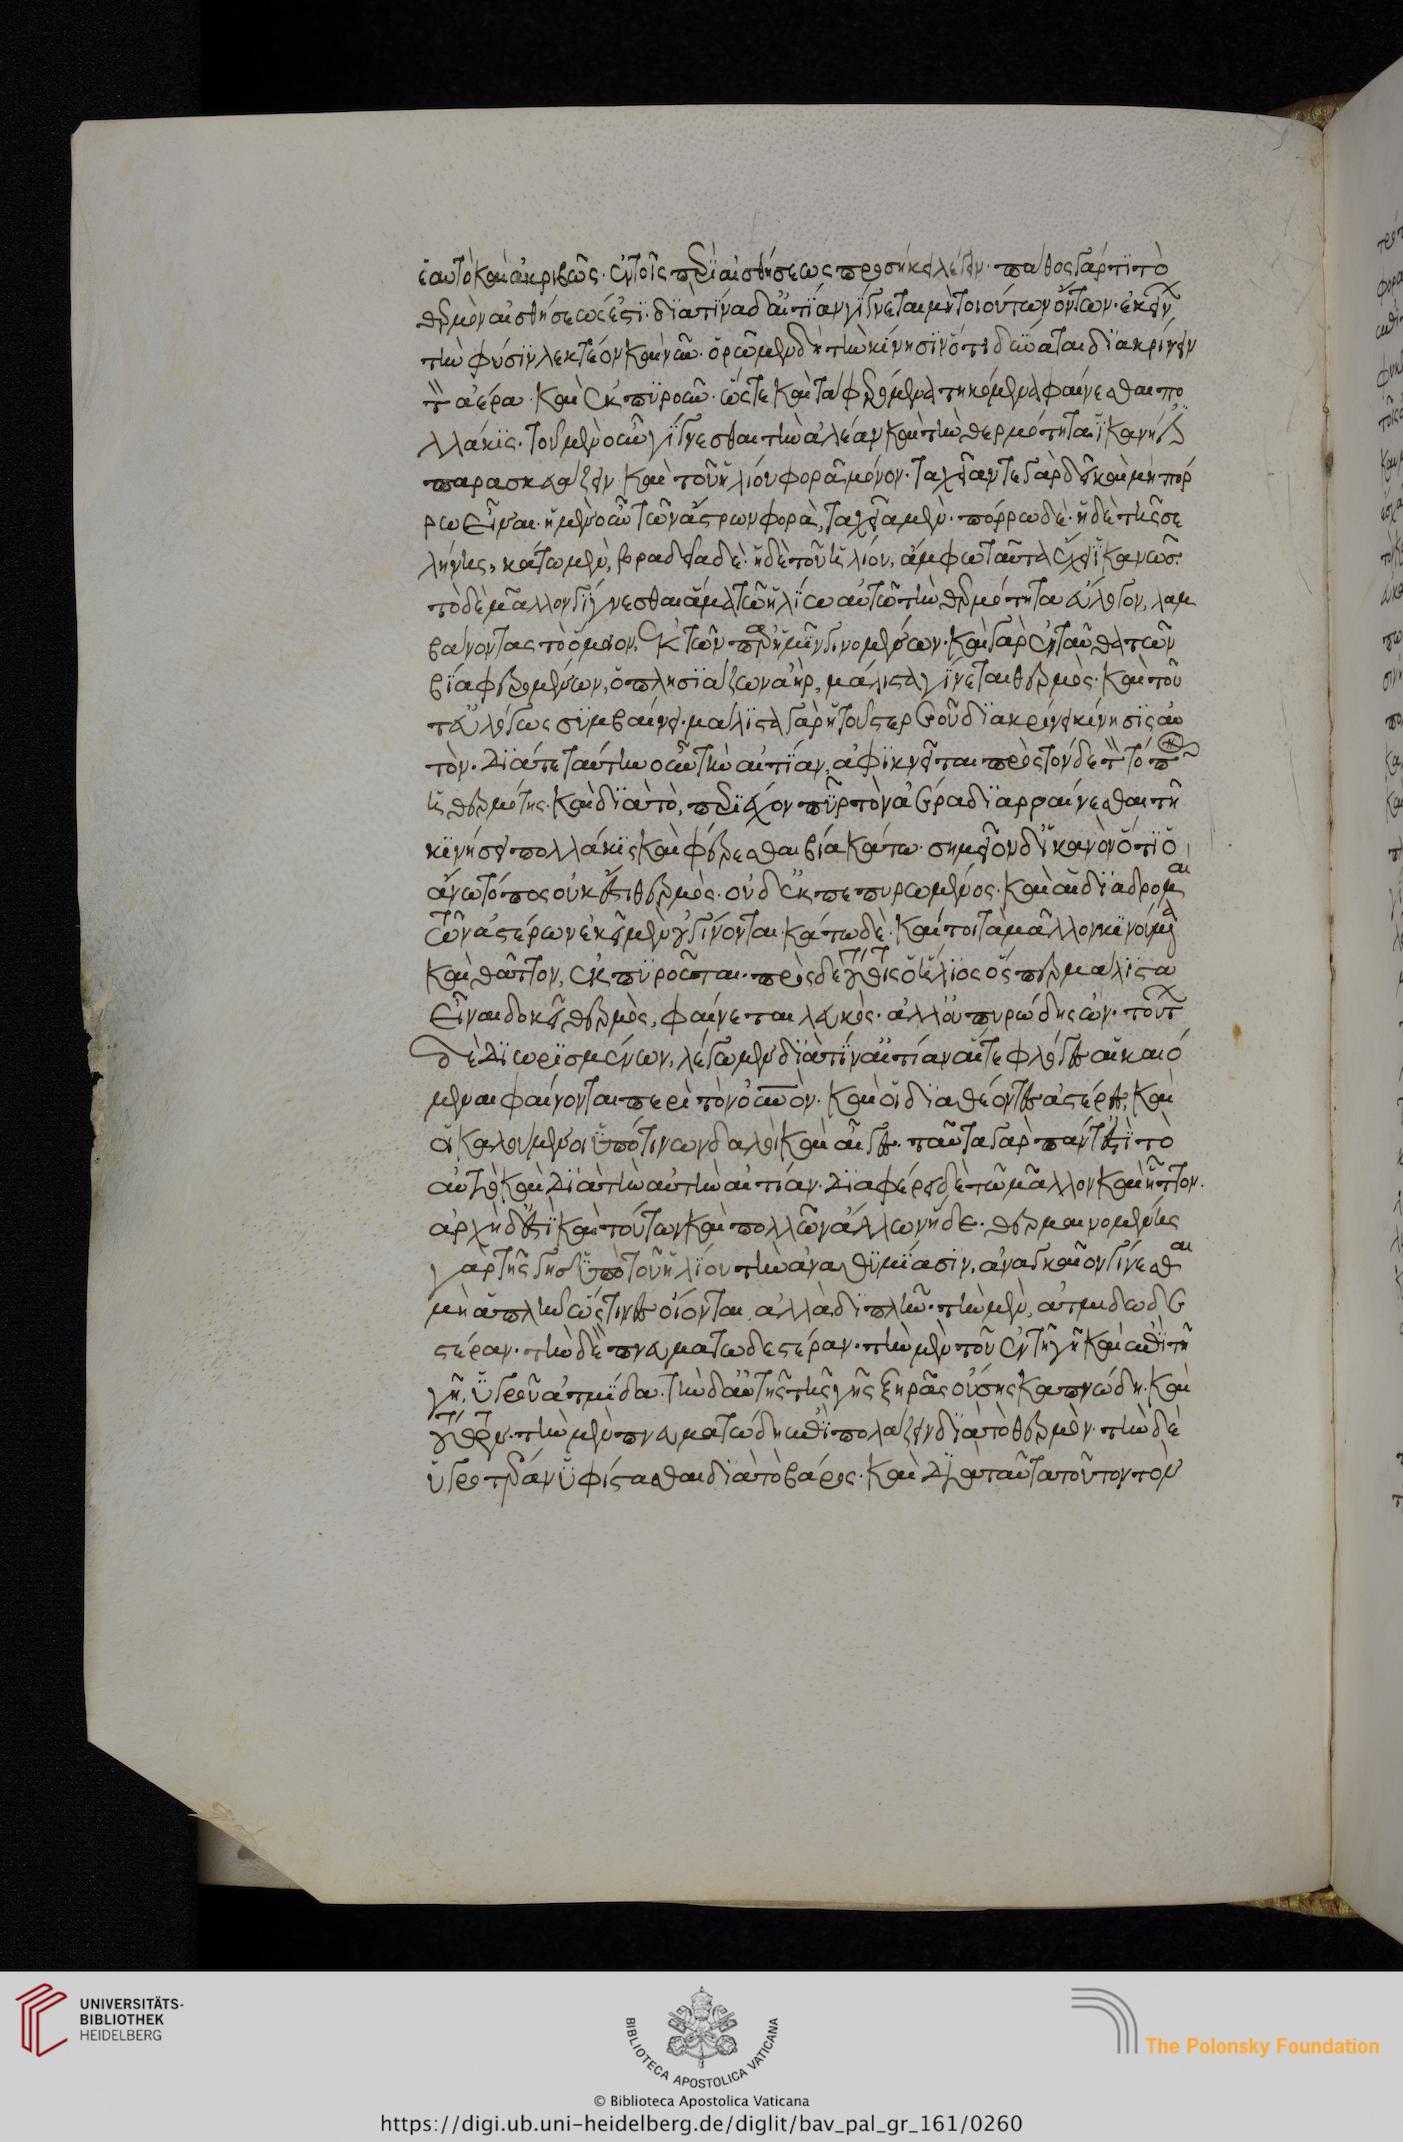 ἑαυτὸ καὶ ἀκριβῶς· ἐν τοῖς περὶ αἰσθήσεως προσήκει λέγειν· πάθος γάρ τι τὸ
θερμὸν αἰσθήσεώς ἐστι· διὰ τίνα δ' αἰτίαν γίγνεται μὴ τοιούτων ὄντων· ἐκείν
τὴν φύσιν λεκτέον καὶ νῦν· ὁρῶμεν δὴ τὴν κίνησιν ὅτι δύναται διακρίνειν
τὸν ἀέρα· καὶ ἐκπυροῦν· ὥστε καὶ τὰ φερόμενα τηκόμενα φαίνεσθαι πο
λλάκις· τοῦ μὲν οὖν γίγνεσθαι τὴν ἀλέαν καὶ τὴν θερμότητα ἱκανή ἐστι
παρασκευάζειν καὶ τοῦ ἡλίου φορὰ μόνον· ταχεῖάν τε γὰρ δεῖ καὶ μὴ πόρ
ρω εἶναι· ἡ μὲν οὖν τῶν ἄστρων φορὰ, ταχεῖα μὲν· πόρρω δὲ· ἡ δὲ τῆς σε
λήνης, κάτω μὲν, βραδεῖα δὲ· ἡ δὲ τοῦ ἡλίου, ἄμφω ταῦτα ἔχει ἱκανῶς.
τὸ δὲ μᾶλλον γίγνεσθαι ἅμα τῶ ἡλίω αὐτῶ τὴν θερμότητα εὔλογον, λαμ
βάνοντας τὸ ὅμοιον, ἐκ τῶν παρ' ἡμῖν γινομένων· καὶ γὰρ ἐνταῦθα τῶν
βία φερομένων, ὁ πλησιάζων ἀὴρ, μάλιστα γίνεται θερμὸς· καὶ τοῦ
τ' εὐλόγως συμβαίνει· μάλιστα γὰρ ἡ τοῦ στερεοῦ διακρίνει κίνησις αὐ
τὸν· διά τε ταύτην οὖν τὴν αἰτίαν, ἀφικνεῖται πρὸς τόνδε τὸν τόπον
ἡ θερμότης· καὶ διὰ τὸ, περιέχον πῦρ τὸν ἀέρα διαρραίνεσθαι τῆ
κινήσει πολλάκις καὶ φέρεσθαι βία κάτω· σημεῖον δ' ἱκανὸν ὅτι ὁ
ἄνω τόπος οὐκ ἔστι θερμὸς· οὐδ' ἐκπεπυρωμένος· καὶ αἱ διαδρομαὶ
τῶν ἀστέρων ἐκεῖ μὲν οὐ γίνονται· κάτω δὲ· καίτοι τὰ μᾶλλον κινούμενα
καὶ θᾶττον, ἐκπυροῦται· πρὸς δὲ τούτοις ὁ ἥλιος ὅσπερ μάλιστα
εἶναι δοκεῖ θερμὸς, φαίνεται λευκὸς· ἀλλ' οὐ πυρώδης ὤν· τούτων
δὲ διωρισμένων, λέγωμεν διὰ τίνα αἰτίαν αἵ τε φλόγες αἱ καιό
μεναι φαίνονται περὶ τὸν οὐνὸν· καὶ οἱ διαθέοντες ἀστέρες, καὶ
οἱ καλούμενοι ὑπό τινων δαλοὶ καὶ αἶγες· ταῦτα γὰρ πάντ' ἐστὶ τὸ
αὐτὸ καὶ διὰ τὴν αὐτὴν αἰτίαν· διαφέρει δὲ τῶ μᾶλλον καὶ ἧττον.
ἀρχὴ δ' ἐστὶ καὶ τούτων καὶ πολλῶν ἄλλων ἥδε· θερμαινομένης
γὰρ τῆς γῆς ὑπὸ τοῦ ἡλίου τὴν ἀναθυμίασιν, ἀναγκαῖον γίνεσθαι
μὴ ἁπλῆν ὥς τινες οἴονται, ἀλλὰ διπλῆν· τὴν μὲν, ἀτμιδωδε
στέραν· τὴν δὲ πνευματωδεστέραν· τὴν μὲν τοῦ ἐν τῆ γῆ καὶ ἐπὶ τῆ
γῆ, ὑγροῦ ἀτμίδα· τὴν δ' αὐτῆς τῆς γῆς ξηρᾶς οὔσης καπνώδη· καὶ
τούτων· τὴν μὲν πνευματώδη ἐπιπολάζειν διὰ τὸ θερμὸν· τὴν δὲ
ὑγροτέραν ὑφίστασθαι διὰ τὸ βάρος· καὶ διὰ ταῦτα τοῦτον τὸν
UNIVERSITÄTS-
BIBLIOTHEK
HEIDELBERG
BIBLIOTECA APOSTOLICA VATICANA
The Polonsky Foundation
© Biblioteca Apostolica Vaticana
https://digi.ub.uni-heidelberg.de/diglit/bav_pal_gr_161/0260